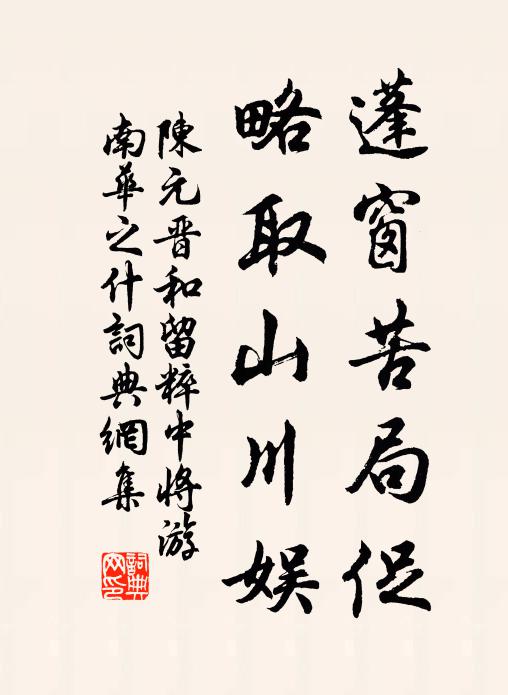 蓬窗苦局促
略取山川娱
陳元晋和留粹中將游
南華之什詞典網集
詞典
网印